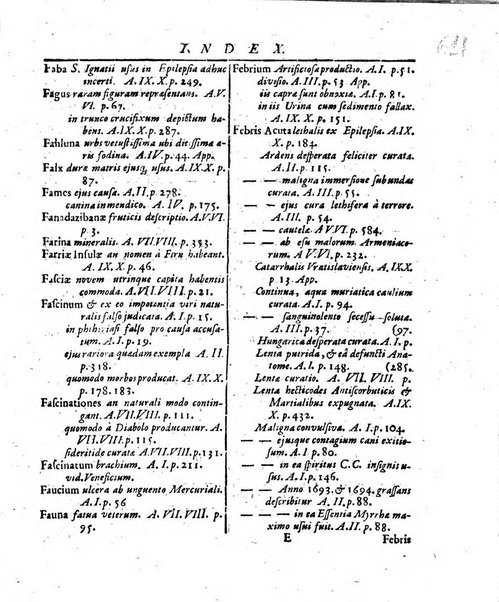 INDEX.
Faba S. Ignatii usus in Epilepsia adhuc
incerti. A. IX. X. p. 249.
Fagus raram figuram repræsentans. A. V.
VI. p. 67.
in trunco crucifixum depictum ha-
bens. A. IX. X. p. 287.
Fahluna urbs vetustissima ubi ditissima æ-
ris fodina. A. IV. p. 44. App.
Falx duræ matris ejusq, usus. A. IX. X. p.
87.
Fames ejus causa. A. II. p. 278.
canina in mendico. A. IV. p. 175.
Fanadazibanæ fruticis descriptio. A. V. VI.
p. 3.
Farina mineralis. A. VII. VIII. p. 353.
Farriæ Insulæ an nomen à Feru habeant.
A. IX. X. p. 46.
Fasciæ novem utrinque capita habentis
commoda. A. VII. VIII. p. 21.
Fascinum & ex eo impotentia viri natu-
ralis falso judicata. A. I. p. 15.
in phthisi falso pro causa accusa-
tum. A. I. p. 19.
ejus rariora quædam exempla A. II
p. 318.
quomodo morbos producat. A. IX. X.
p. 178. 183.
Fascinationes an naturali modo contin-
gant. A. VII. VIII. p. 111.
quomodo à Diabolo producantur. A.
VII. VIII. p. 115.
sideritide curatæ A. VII. VIII. p. 131.
Fascinatum brachium. A. I. p. 211.
vid. Veneficium.
Faucium ulcera ab unguento Mercuriali.
A. I. p. 56
Fauna fatua veterum. A. VII. VIII. p.
95.
Febrium Artificiosa productio. A. I. p. 51.
divisio. A. III. p. 53. App.
iis capræ sunt obnoxiæ. A. I. p. 81.
in iis Urina cum sedimento fallax.
A. IX. X. p. 151.
Febris Acuta lethalis ex Epilepsia. A. IX.
X. p. 184.
Ardens desperata feliciter curata.
A. II. p. 115.
— — maligna immersione sub undas
curata. A. III. p. 55.
— — ejus cura lethifera à terrore.
A. III. p. 54.
— — cautela. A V. VI. p. 584.
— — ab esu malorum Armeniaco-
rum. A V. VI. p. 232.
Catarrhalis Vratislaviensis. A. IX. X
p. 13 App.
Continua, aqua muriatica caulium
curata. A. I. p. 94.
— — sanguinolento secessu soluta.
A. III. p. 37. (97.
Hungarica desperata curat. A. I. p.
Lenta putrida, & ea defuncti Ana-
tome. A. I. p. 148. (285.
Lentæ curatio. A. VII. VIII. p.
Lenta hecticodes Antiscorbuticis &
Martialibus expugnata. A. IX.
X. p. 432.
Maligna convulsiva. A. I. p. 104.
— — ejusque contagium cani exitio-
sum. A. I. p. 80.
— — in ea spiritus C. C. insignis u-
sus. A. I. p. 146.
— — Anno 1693. & 1694. grassans
describitur A. II. p. 88.
— — in ea Essentiæ Myrrhæ ma-
ximo usui fuit. A. II. p. 88.
E Febris